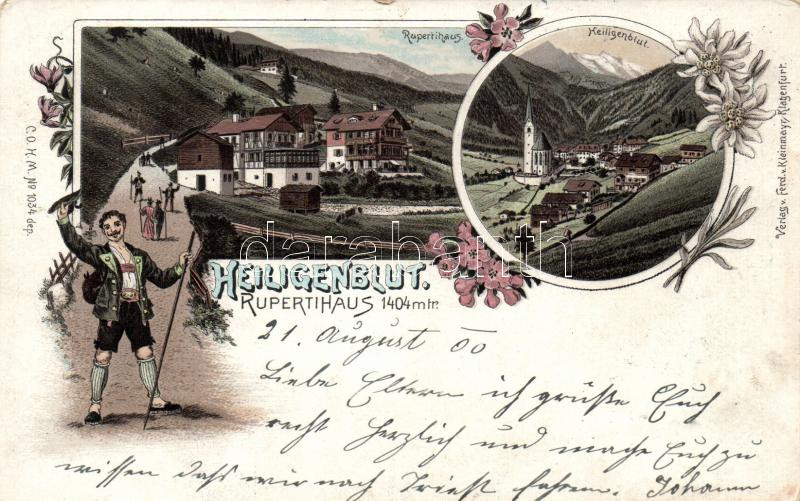 Rupertihaus.
Heiligenblut.
C.O.H.M. No 1034 dep.
Verlag v. Ferd. v. Kleinmayr, Klagenfurt.
darabanth
HEILIGENBLUT.
RUPERTIHAUS 1404 mtr.
21. August 00
Liebe Eltern ich grüße Euch
recht herzlich und mache Euch zu
wissen dass wir nach Triest fahren. Johann